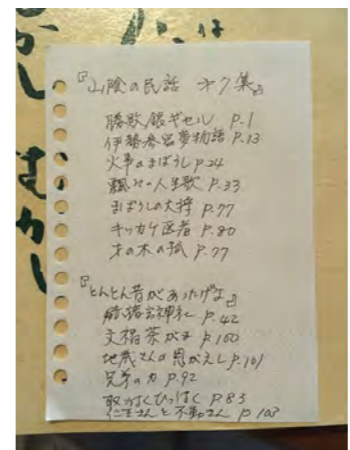 むかし
むかし
『山陰の民話 オ7集』
勝敗銀ギセル P.1
伊勢参宮夢物語 P.13
火事のまぼろし P.24
飄々の人生歌 P.33
まぼろしの大擇 P.77
キッカケ医者 P.80
才の木の狐 P.97
『とんとん昔があったげな』
神社 P.42
文楣茶がま P.100
地蔵さんの恩がえし P.101
兄弟の力 P.92
取っ付くひっ付く P.83
仁王さんと不動さん P.103